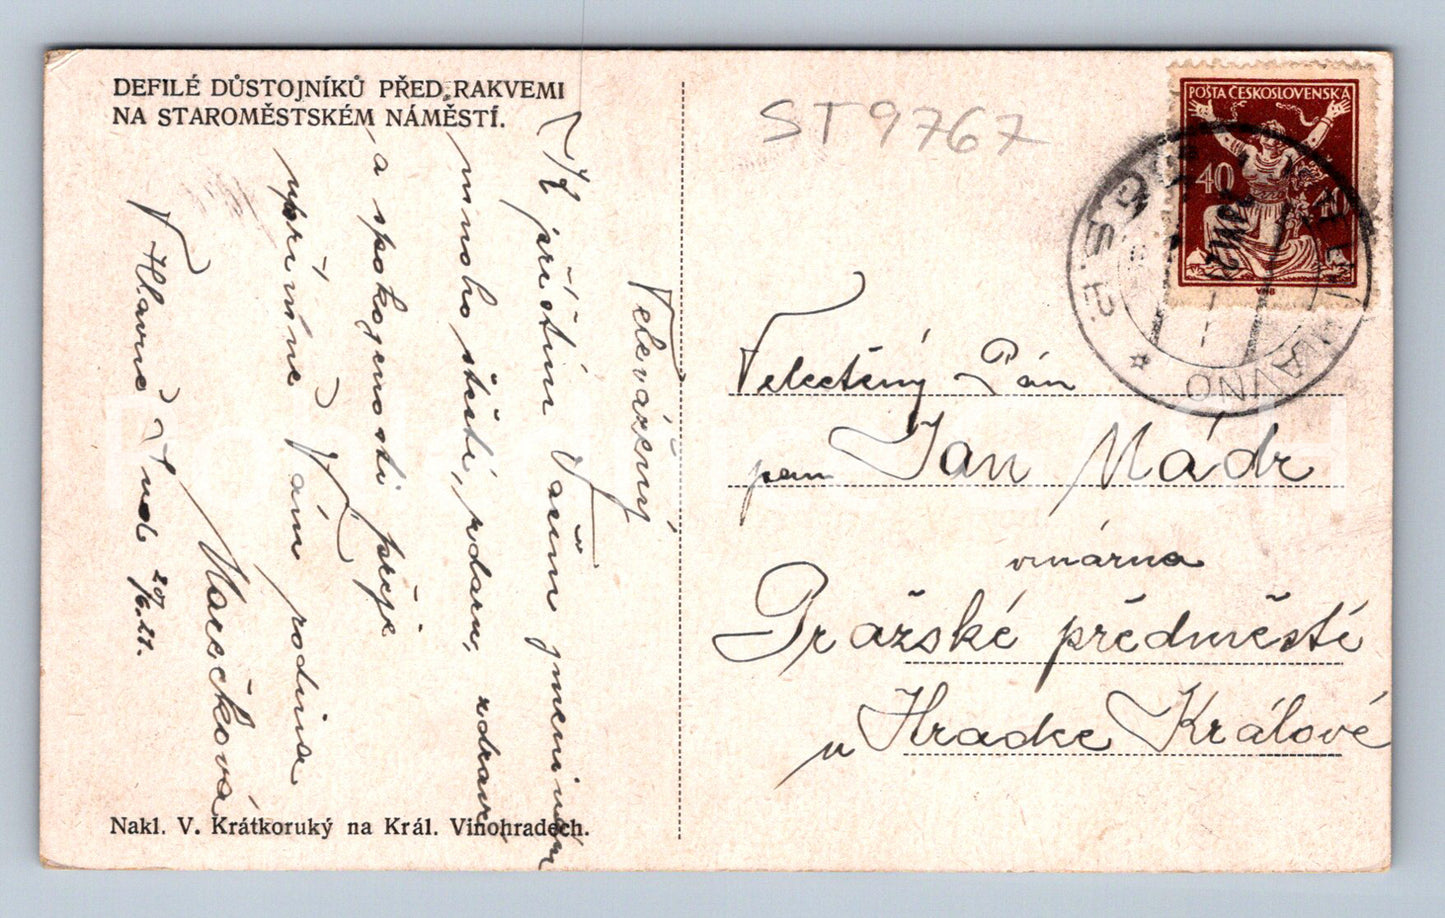 DEFILÉ DŮSTOJNÍKŮ PŘED RAKVEMI
NA STAROMĚSTSKÉM NÁMĚSTÍ.
Velevážený
příštím Vašim jmeninám
mnoho štěstí, zdaru, zdraví
a spokojenosti přeje
upřímně Vám rodina
Marečková
V Hlavně Sud. 20/6.21.
Nakl. V. Krátkoruký na Král. Vinohradech.
ST9767
POŠTA ČESKOSLOVENSKÁ
40
HLAVNO
Velectěný Pán
pan Jan Mádr
vinárna
Pražské předměstí
u Hradce Králové